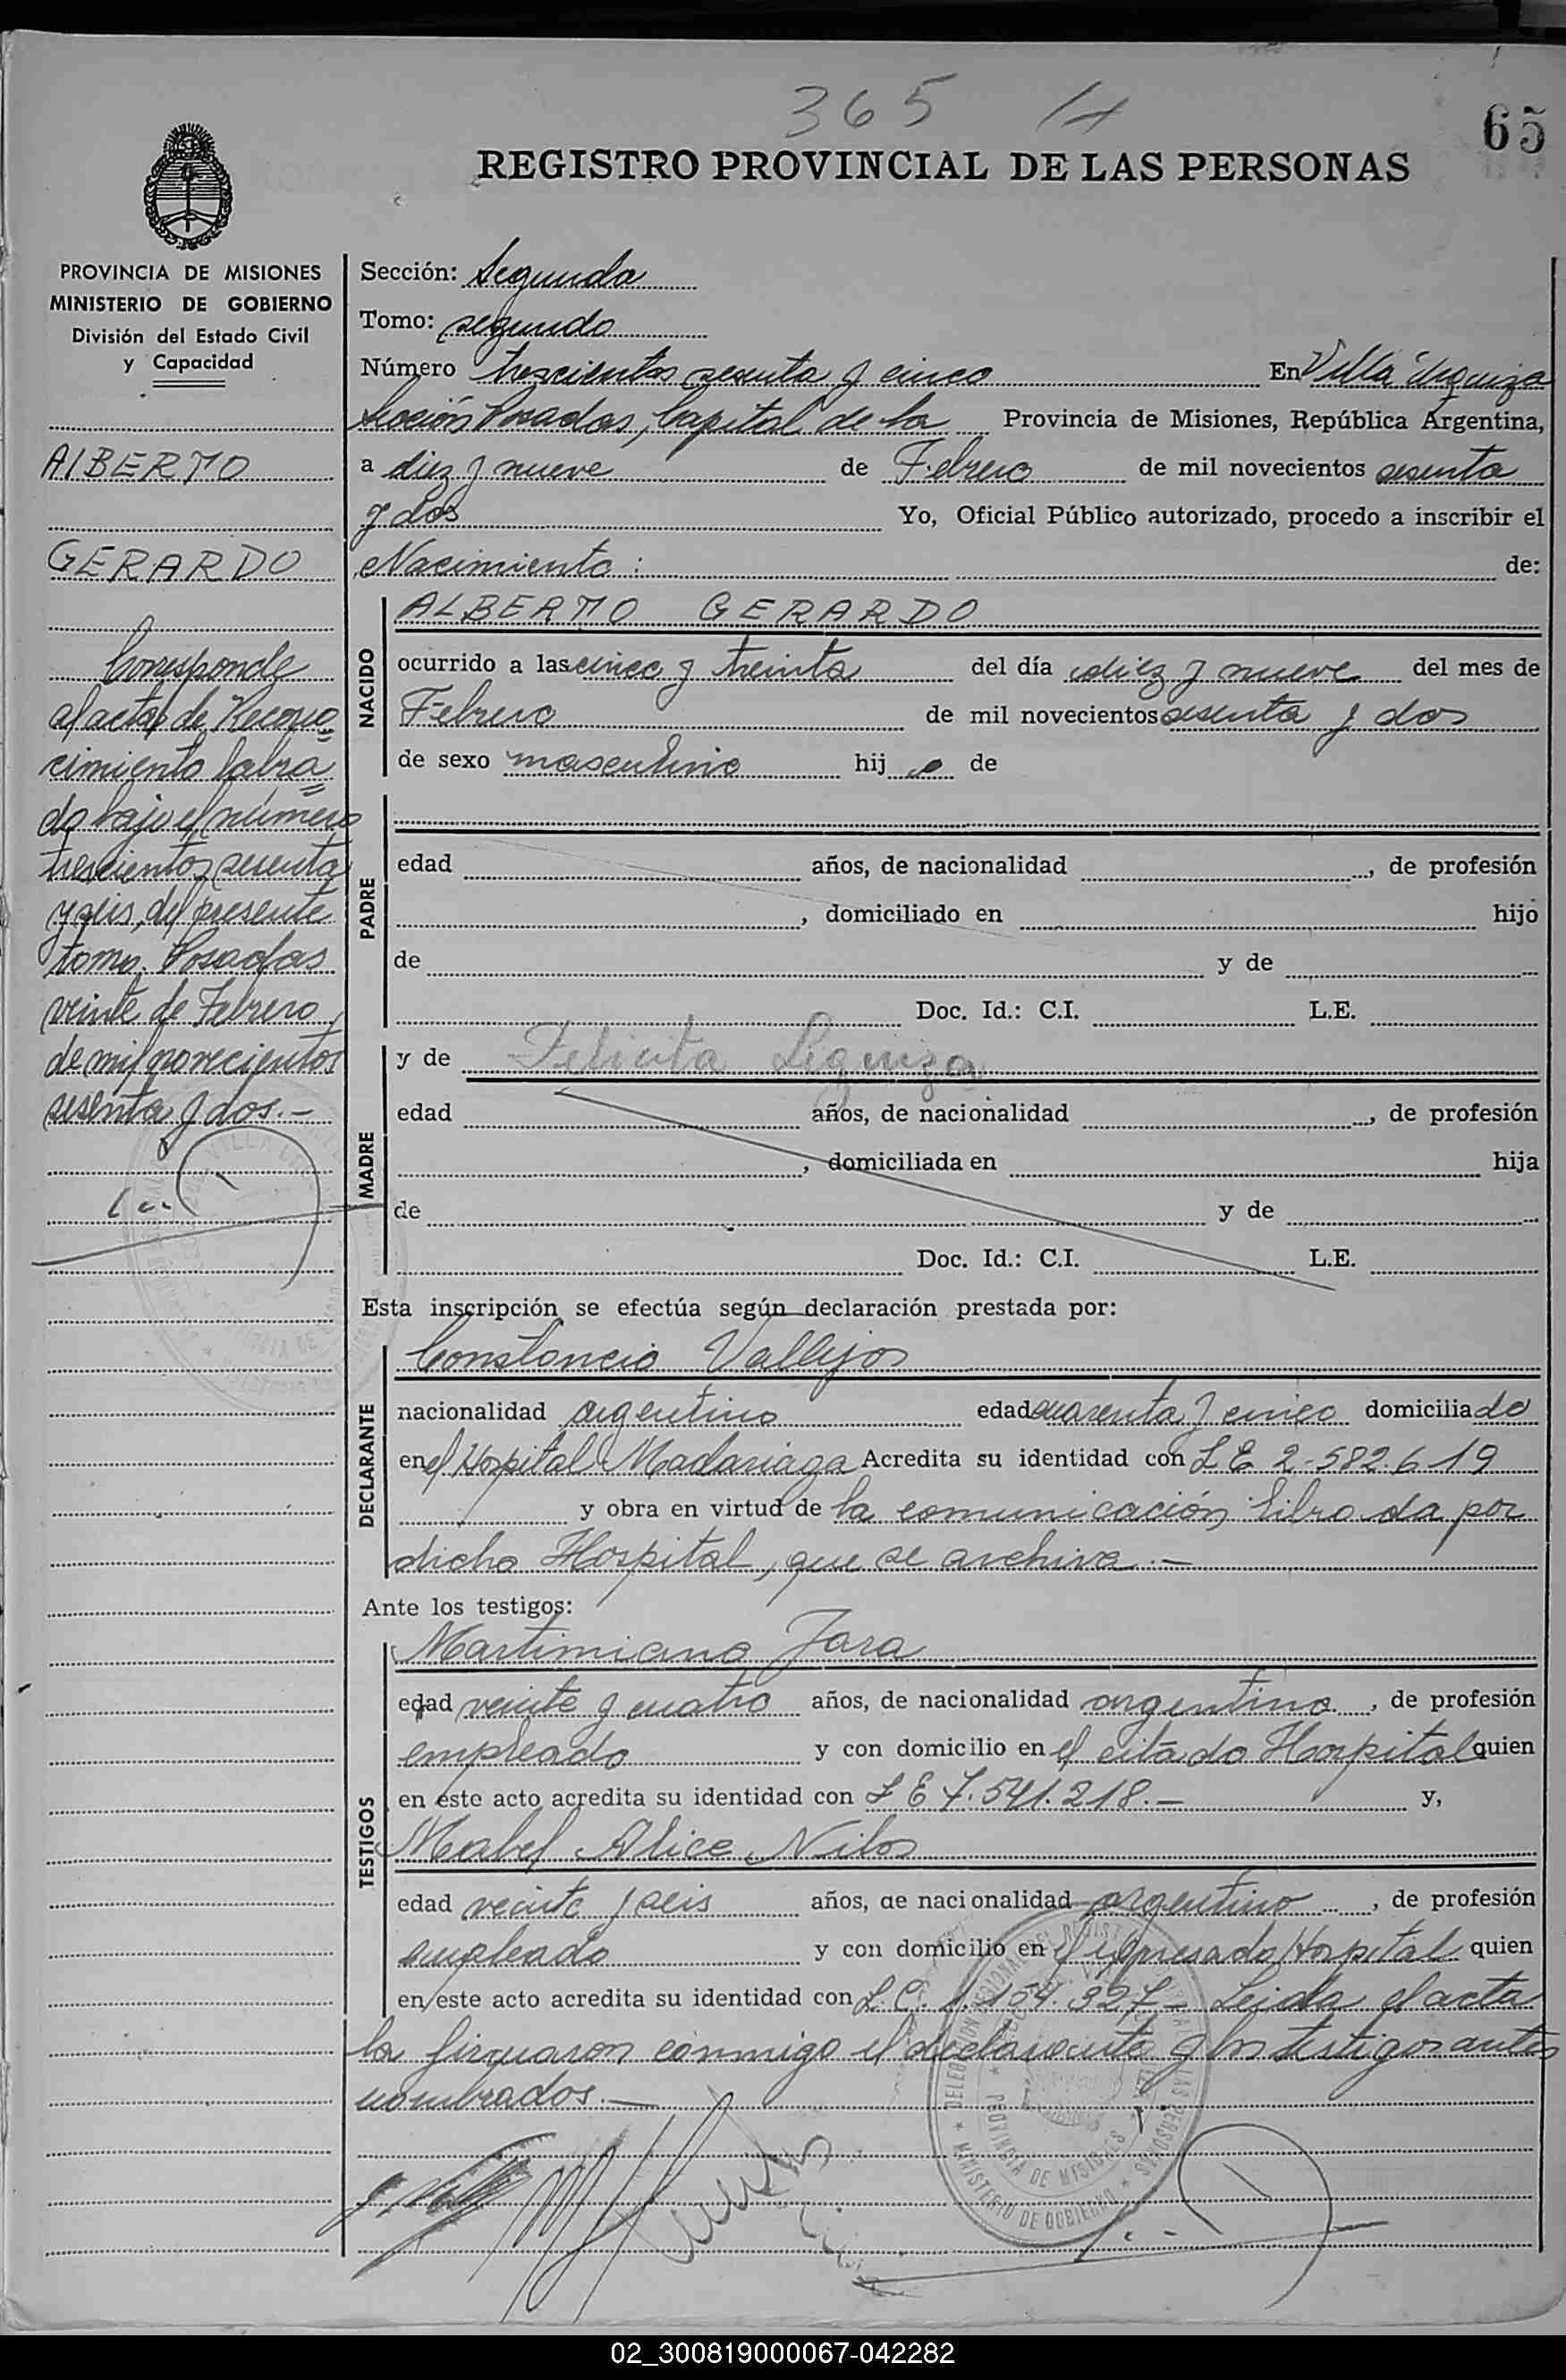 365
65
REGISTRO PROVINCIAL DE LAS PERSONAS
PROVINCIA DE MISIONES
MINISTERIO DE GOBIERNO
División del Estado Civil
y Capacidad
ALBERTO
GERARDO
Corresponde
al acta de Recono
cimiento labra
do bajo el número
trescientos sesenta
y seis, del presente
tomo. Posadas
veinte de Febrero
de mil novecientos
sesenta y dos.-
Sección: Segunda
Tomo: segundo
Número trescientos sesenta y cinco En Villa Urquiza
Sección Posadas, Capital de la Provincia de Misiones, República Argentina,
a diez y nueve de Febrero de mil novecientos sesenta
y dos Yo, Oficial Público autorizado, procedo a inscribir el
Nacimiento: de:
NACIDO
ALBERTO GERARDO
ocurrido a las cinco y treinta del día diez y nueve del mes de
Febrero de mil novecientos sesenta y dos
de sexo masculino hijo de
PADRE
edad años, de nacionalidad , de profesión
, domiciliado en hijo
de y de
Doc. Id.: C.I. L.E.
MADRE
y de Felicita Leguiza
edad años, de nacionalidad , de profesión
, domiciliada en hija
de y de
Doc. Id.: C.I. L.E.
Esta inscripción se efectúa según declaración prestada por:
DECLARANTE
Constancio Vallejos
nacionalidad argentino edad cuarenta y cinco domiciliado
en el Hospital Madariaga Acredita su identidad con L E 2-582.619
y obra en virtud de la comunicación librada por
dicho Hospital, que se archiva.-
Ante los testigos:
TESTIGOS
Martimiano Jara
edad veinte y cuatro años, de nacionalidad argentino , de profesión
empleado y con domicilio en el citado Hospital quien
en este acto acredita su identidad con L E 7.541.218.- y,
Mabel Alice Nilos
edad veinte y seis años, de nacionalidad argentino , de profesión
empleado y con domicilio en el expresado Hospital quien
en este acto acredita su identidad con L.C. 1.154.327- Leida el acta
la firmaron conmigo el declarante y los testigos antes
nombrados.-
PROVINCIA DE MISIONES
MINISTERIO DE GOBIERNO
02_300819000067-042282